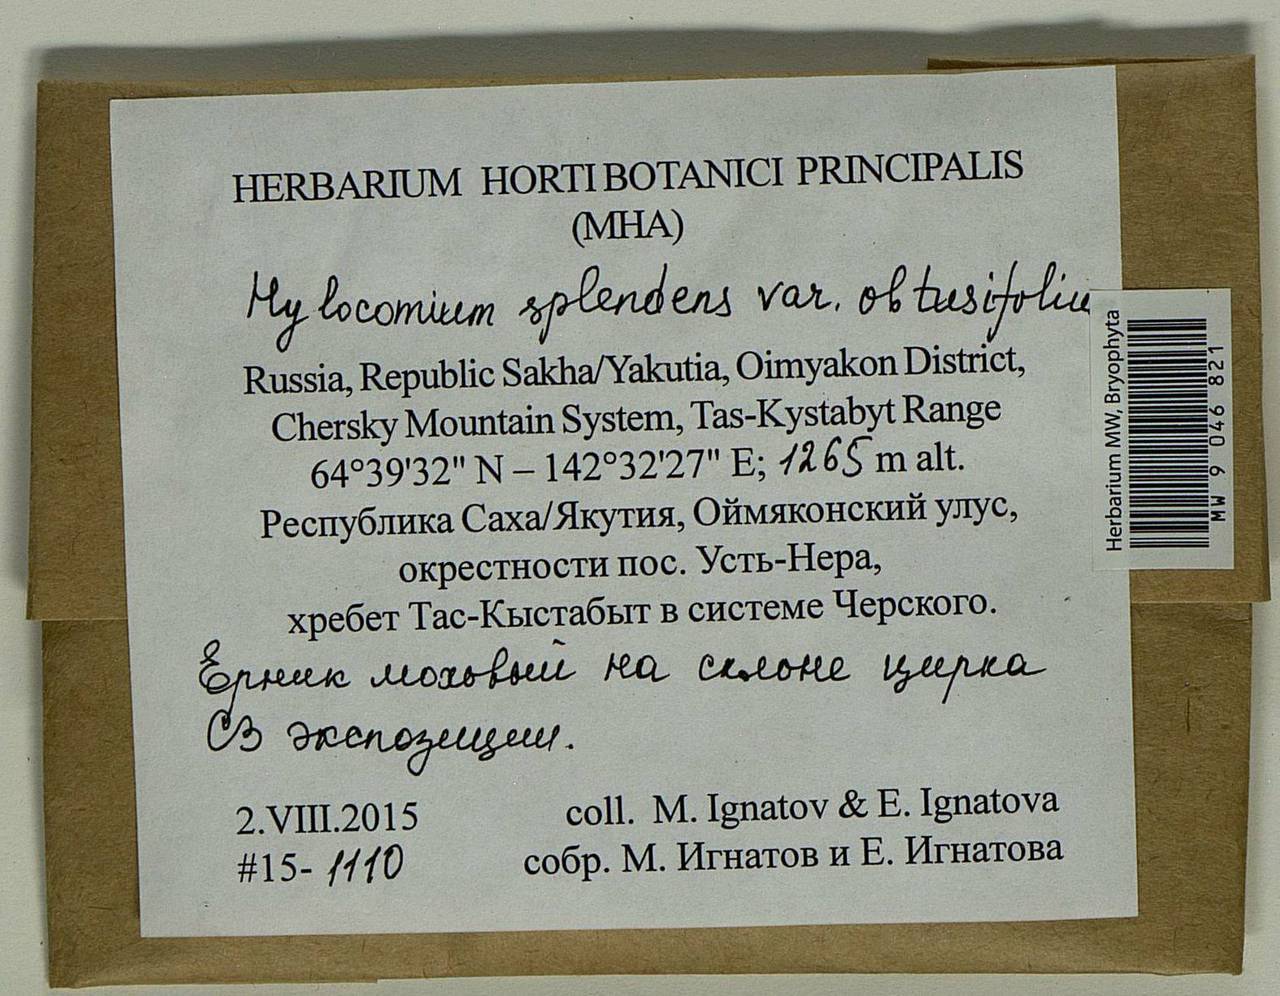 HERBARIUM HORTI BOTANICI PRINCIPALIS
(MHA)
Hylocomium splendens var. obtusifoliu
Russia, Republic Sakha/Yakutia, Oimyakon District,
Chersky Mountain System, Tas-Kystabyt Range
64°39'32" N – 142°32'27" E; 1265 m alt.
Республика Саха/Якутия, Оймяконский улус,
окрестности пос. Усть-Нера,
хребет Тас-Кыстабыт в системе Черского.
Ерник моховый на склоне цирка
СЗ экспозиции.
2.VIII.2015 coll. M. Ignatov & E. Ignatova
#15-1110 собр. М. Игнатов и Е. Игнатова
Herbarium MW, Bryophyta
MW 9 046 821